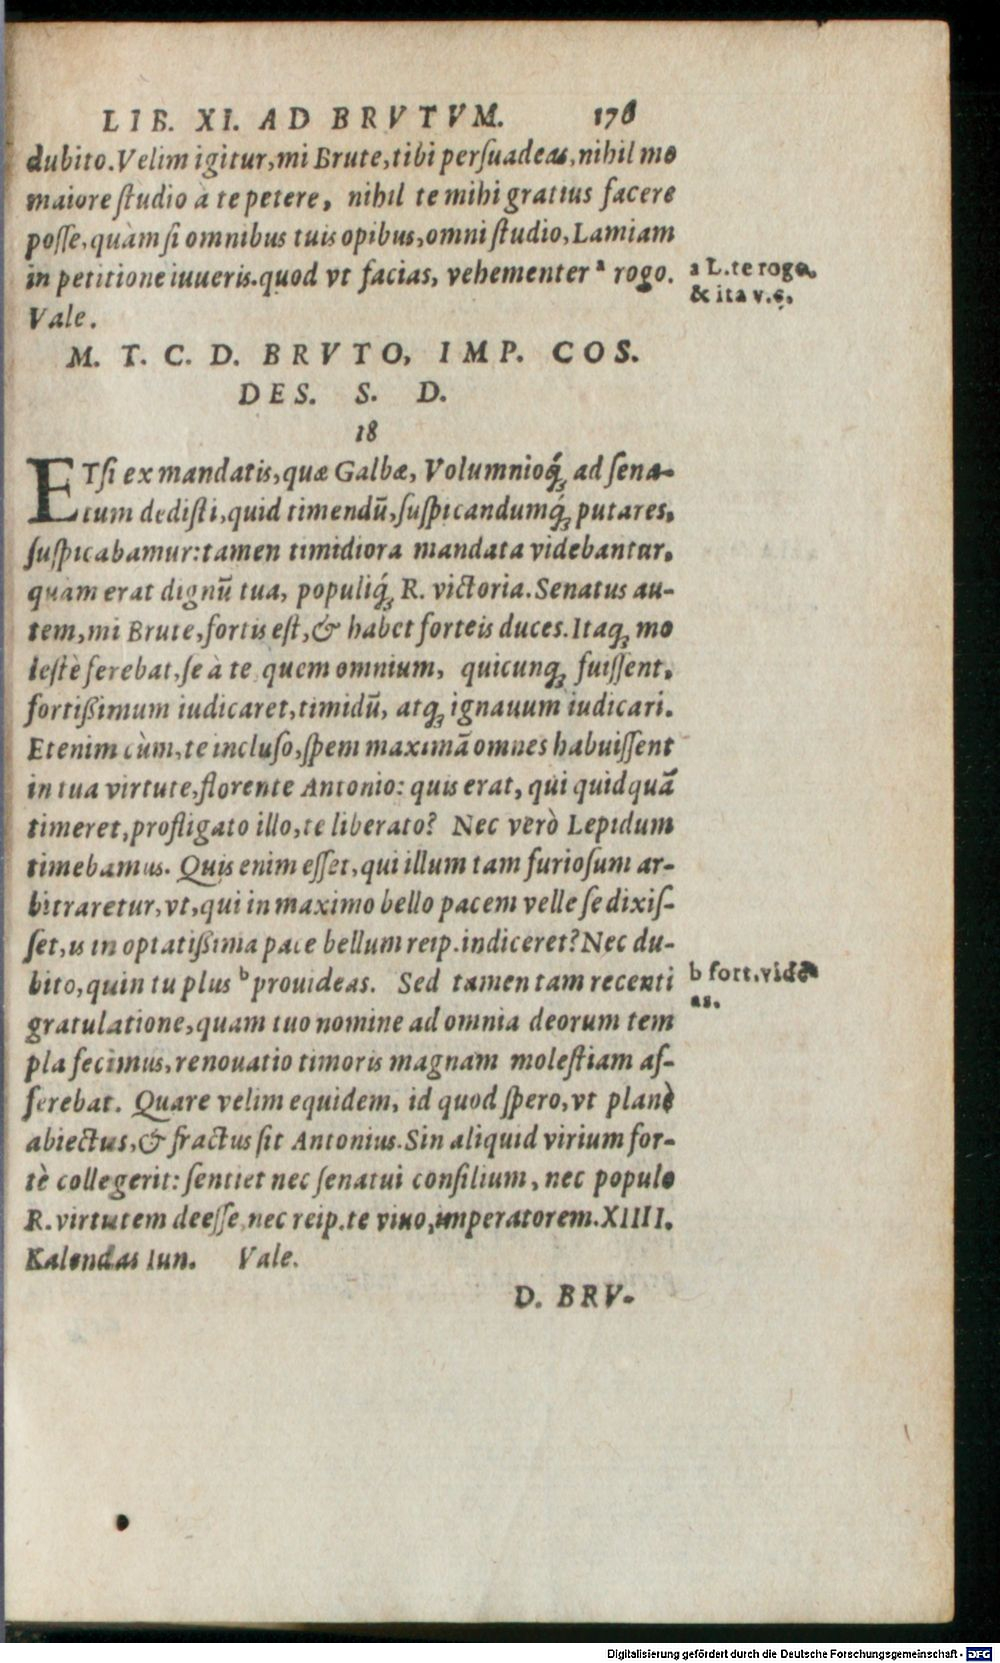 LIB. XI. AD BRVTVM. 176
dubito. Velim igitur, mi Brute, tibi persuadeas, nihil me
maiore studio à te petere, nihil te mihi gratius facere
posse, quàm si omnibus tuis opibus, omni studio, Lamiam
in petitione iuueris. quod vt facias, vehementer ª rogo.
a L. te rogo.
& ita v.c.
Vale.
M. T. C. D. BRVTO, IMP. COS.
DES. S. D.
18
ETsi ex mandatis, quæ Galbæ, Volumnioq́; ad sena-
tum dedisti, quid timendū, suspicandumq́; putares,
suspicabamur: tamen timidiora mandata videbantur,
quàm erat dignū tua, populiq́; R. victoria. Senatus au-
tem, mi Brute, fortis est, & habet forteis duces. Itaq; mo
lestè ferebat, se à te quem omnium, quicunq; fuissent,
fortißimum iudicaret, timidū, atq; ignauum iudicari.
Etenim cùm, te incluso, spem maximā omnes habuissent
in tua virtute, florente Antonio: quis erat, qui quidquā
timeret, profligato illo, te liberato? Nec verò Lepidum
timebamus. Quis enim esset, qui illum tam furiosum ar-
bitraretur, vt, qui in maximo bello pacem velle se dixis-
set, is in optatißima pace bellum reip. indiceret? Nec du-
bito, quin tu plus ᵇ prouideas. Sed tamen tam recenti
b fort. vide
as.
gratulatione, quam tuo nomine ad omnia deorum tem
pla fecimus, renouatio timoris magnam molestiam af-
ferebat. Quare velim equidem, id quod spero, vt planè
abiectus, & fractus sit Antonius. Sin aliquid virium for-
tè collegerit: sentiet nec senatui consilium, nec populo
R. virtutem deesse, nec reip. te viuo, imperatorem. XIIII.
Kalendas Iun. Vale.
D. BRV-
Digitalisierung gefördert durch die Deutsche Forschungsgemeinschaft - DFG